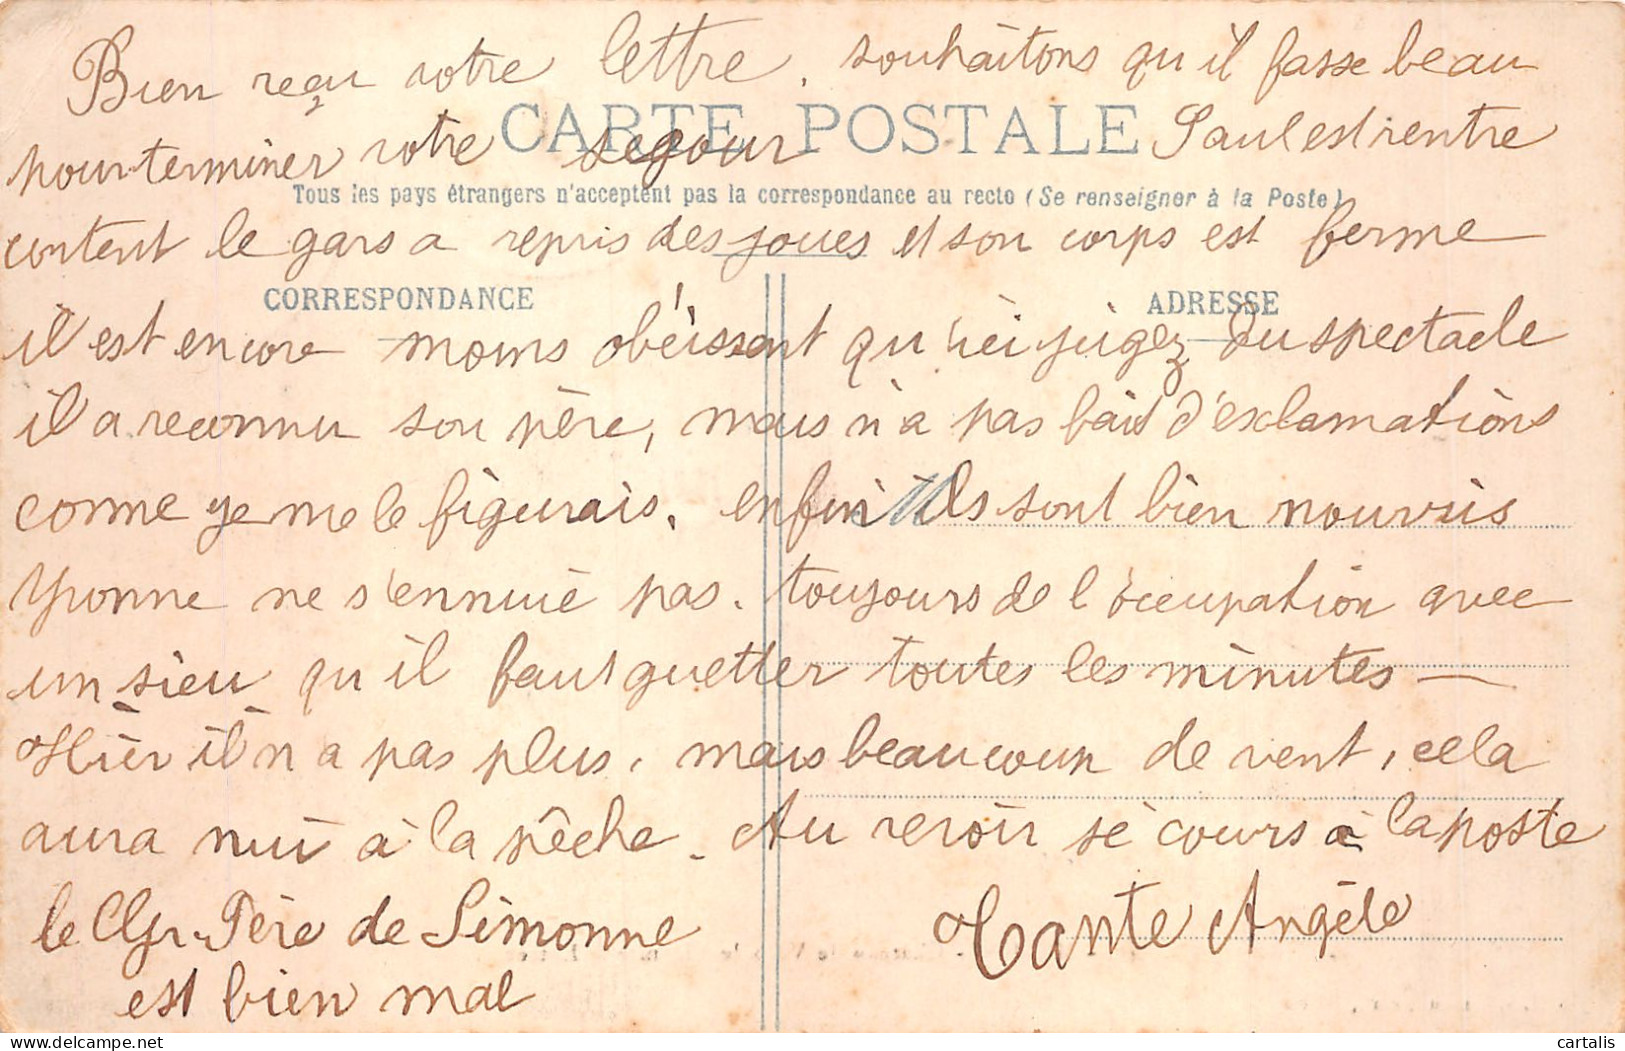 Bien reçu votre lettre. souhaitons qu'il fasse beau
CARTE POSTALE
pour terminer votre segour Paul est rentre
Tous les pays étrangers n'acceptent pas la correspondance au recto (Se renseigner à la Poste)
content le gars a repris des joues et son corps est ferme
CORRESPONDANCE
ADRESSE
il est encore moins obéissant qu'ici jugez du spectacle
il a reconnu son père, mais n'a pas fait d'exclamations
comme je me le figurais. enfin ils sont bien nourris
Yvonne ne s'ennuie pas. toujours de l'occupation avec
un sieu qu'il faut guetter toutes les minutes —
Hier il n'a pas plus, mais beaucoup de vent, cela
aura nui à la pêche. Au revoir je cours à la poste
le Gr. Père de Simonne
Tante Angèle
est bien mal
cartalis